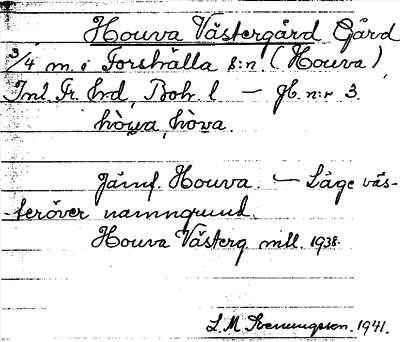 Houva Västergård Gård
3/4 m. i Forshälla s:n. (Houva)
Inl. Fr. hrd, Boh. l — gb. n:r 3.
hòwa, hòva.
Jämf. Houva. — Läge väs-
teröver namngrund.
Houva Västerg mtl. 1938.
L. M. Svenungsson. 1941.